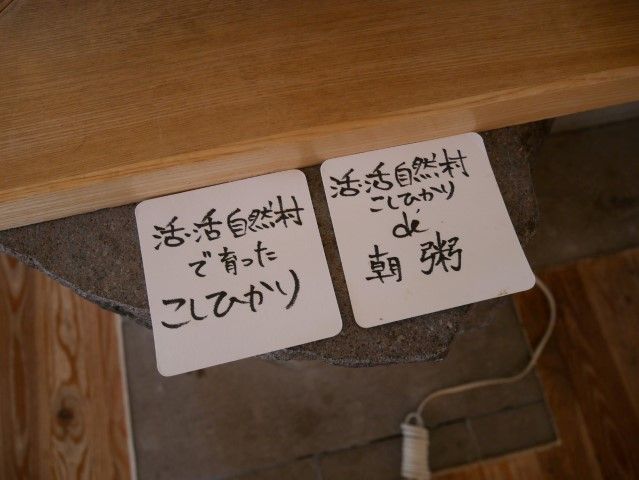 活・活自然村
で育った
こしひかり
活・活自然村
こしひかり
de
朝粥